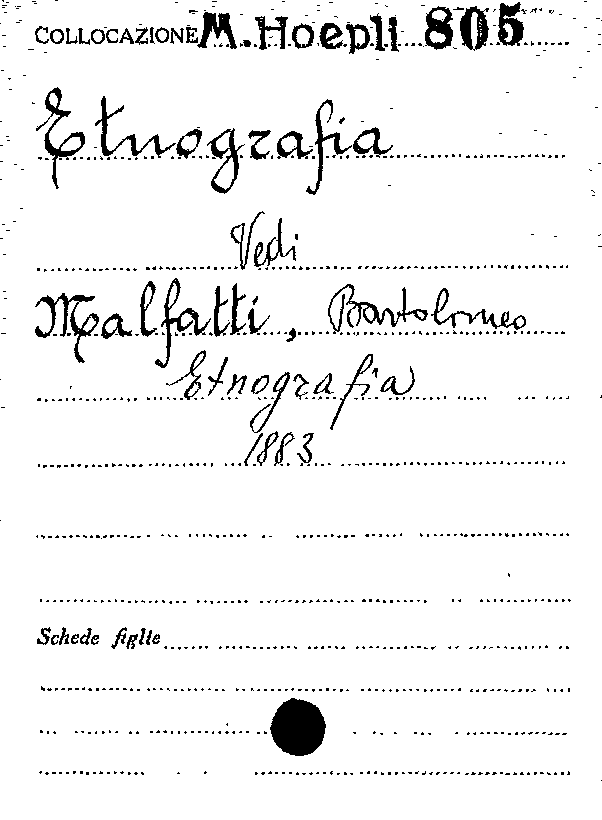 COLLOCAZIONE M. Hoepli 805
Etnografia
Vedi
Malfatti, Bartolomeo
Etnografia
1883
Schede figlie